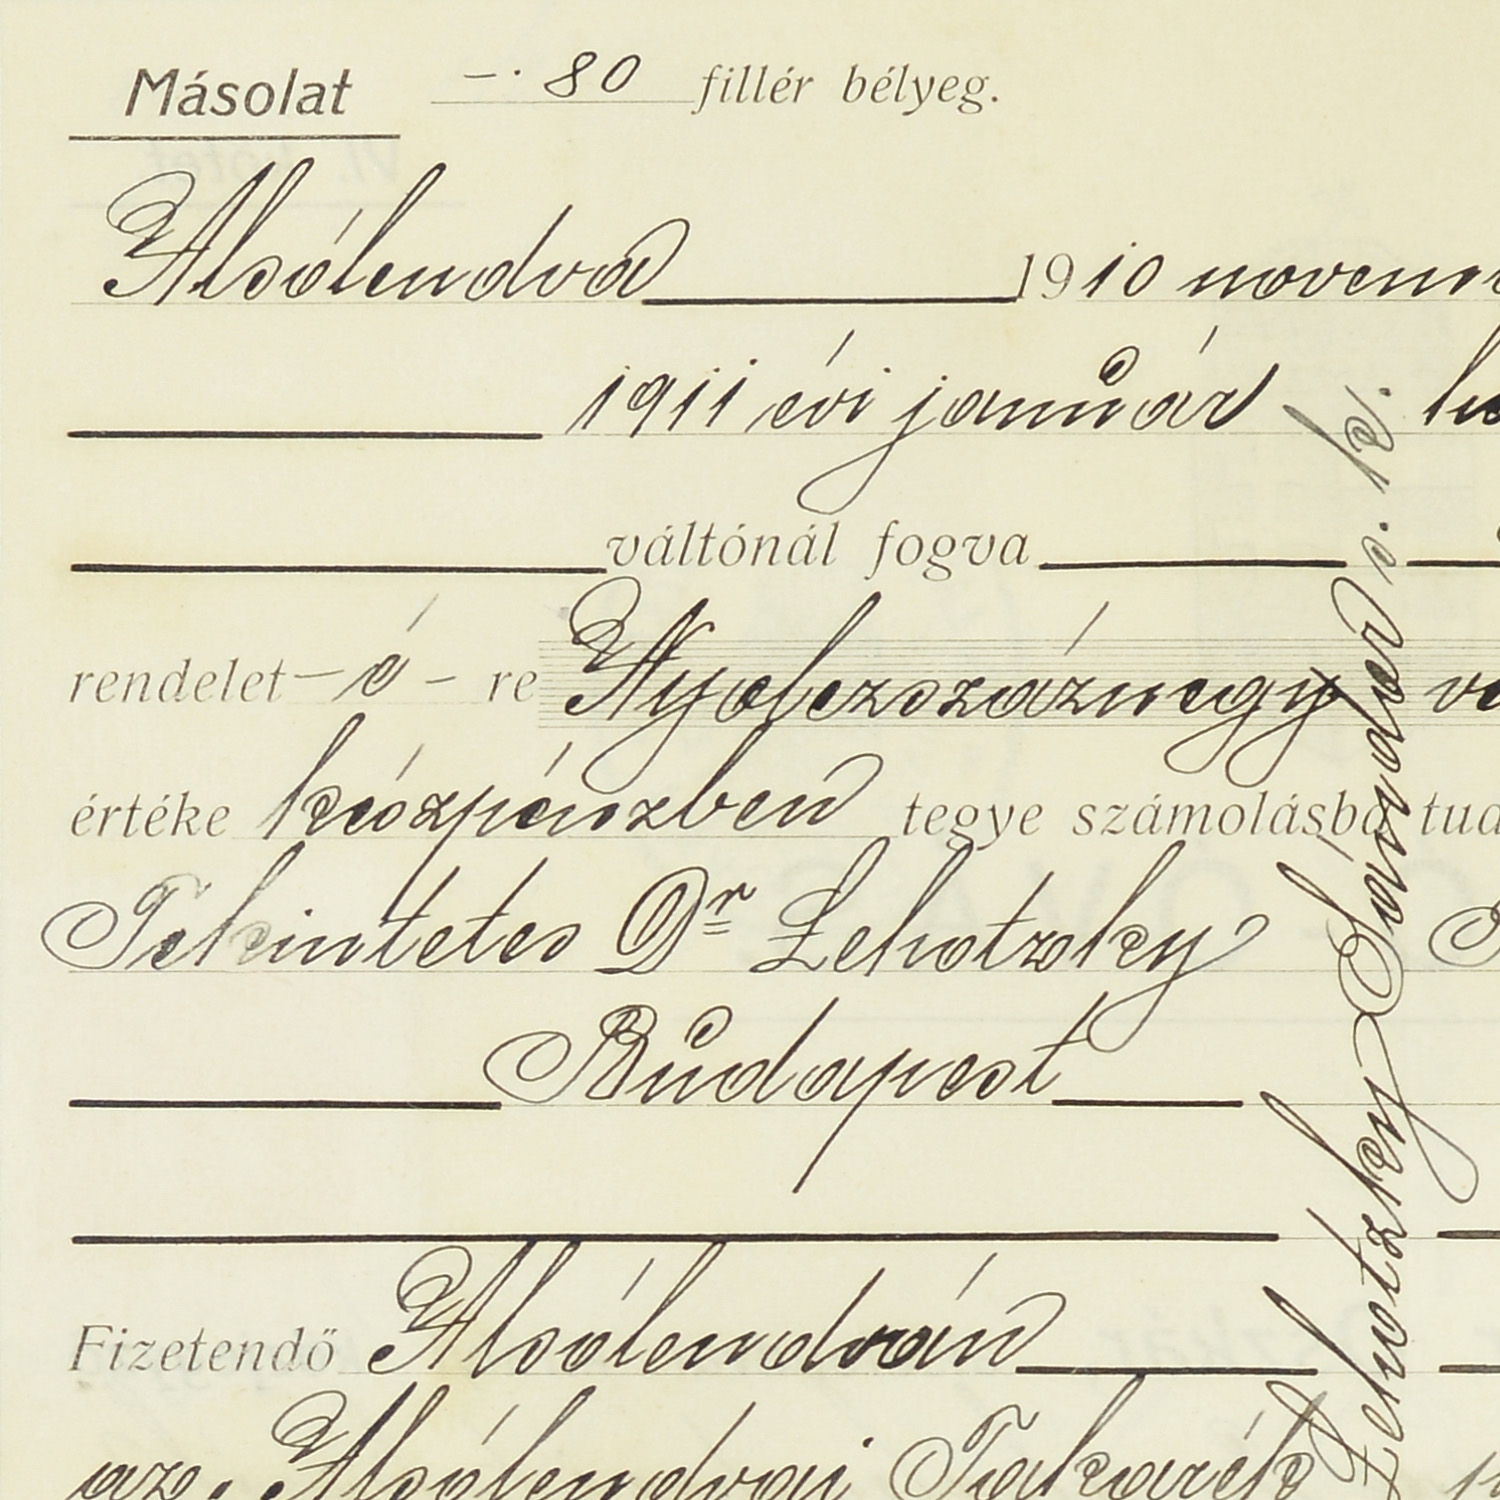 Másolat -.80 fillér bélyeg.
Alsólendva 1910
1911 évi január
váltónál fogva
rendelet - ó - re Nyolczszáznegy
értéke készpénzben tegye számolásba
Tekintetes Dr Lehotzky
Budapest
Fizetendő Alsólendván
az Alsólendvai Takarék
Lehotzky Sándor s. k.